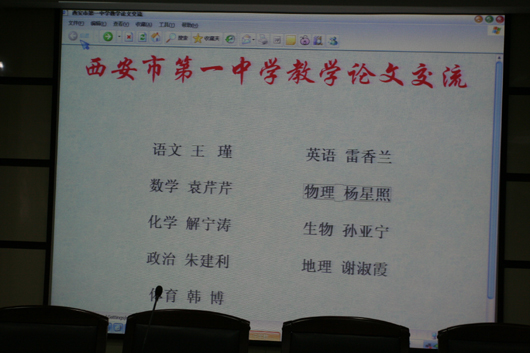 西安市第一中学教学论文交流
语文 王 瑾
英语 雷香兰
数学 袁芹芹
物理 杨星照
化学 解宁涛
生物 孙亚宁
政治 朱建利
地理 谢淑霞
体育 韩 博